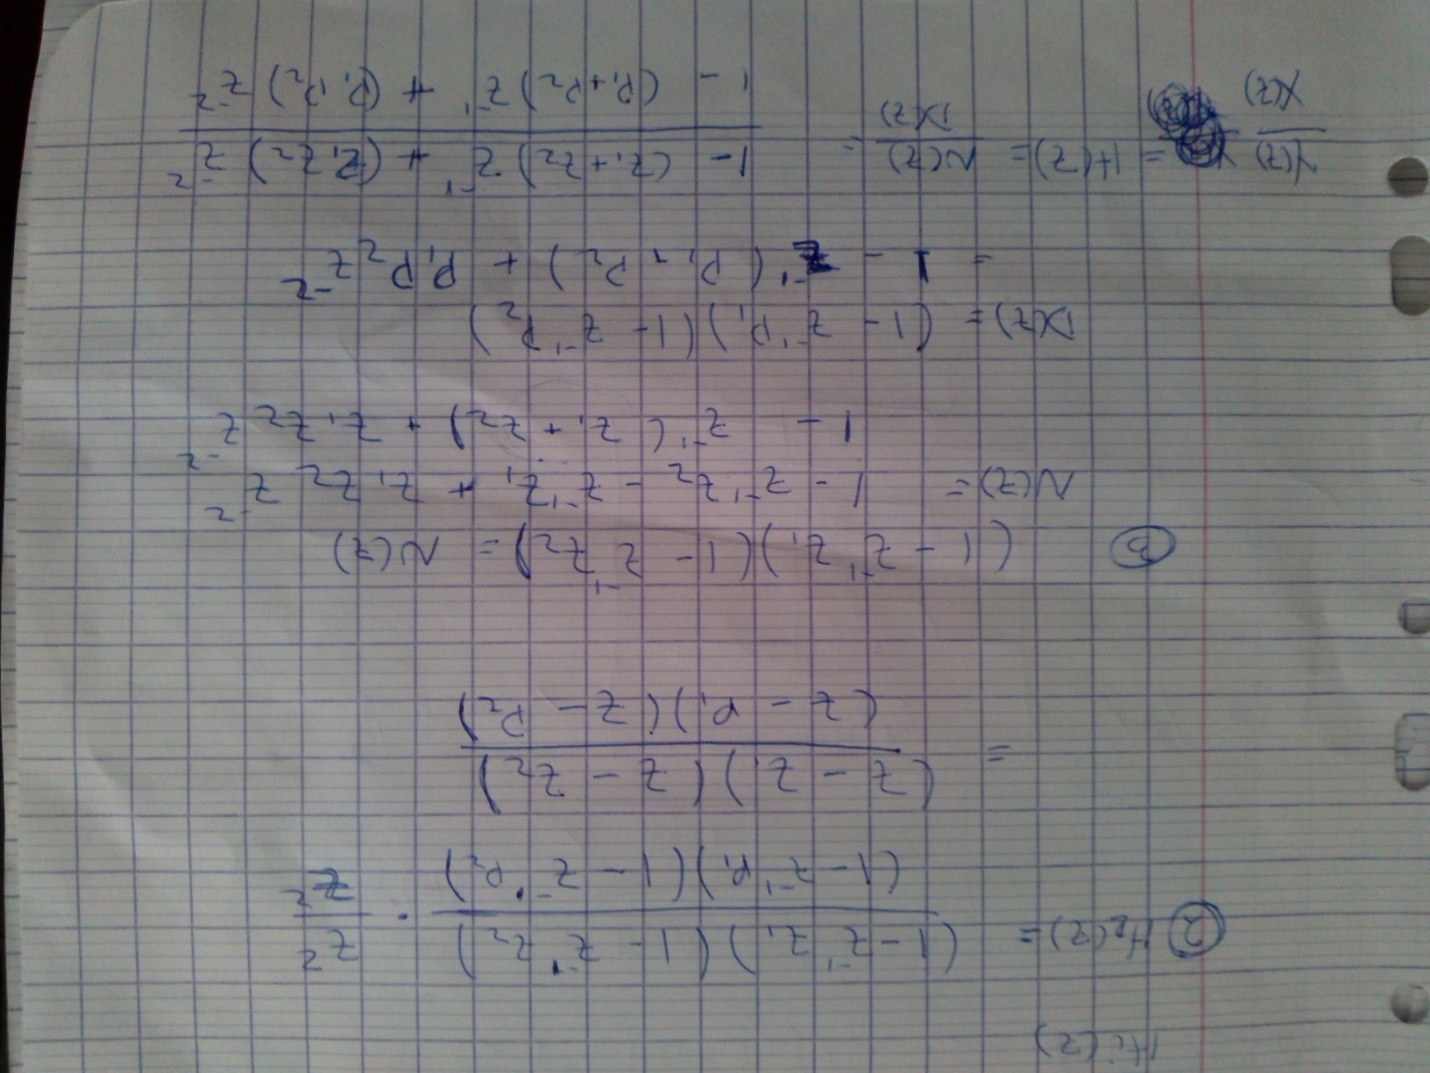 H₁(z)
② H₂(z) = (1 - z⁻¹z₁)(1 - z⁻¹z₂) / (1 - z⁻¹p₁)(1 - z⁻¹p₂) · z² / z²
= (z - z₁)(z - z₂) / (z - p₁)(z - p₂)
③ (1 - z⁻¹z₁)(1 - z⁻¹z₂) = N(z)
N(z) = 1 - z⁻¹z₂ - z⁻¹z₁ + z₁z₂ z⁻²
1 - z⁻¹(z₁ + z₂) + z₁z₂ z⁻²
D(z) = (1 - z⁻¹p₁)(1 - z⁻¹p₂)
= 1 - z⁻¹(p₁ + p₂) + p₁p₂ z⁻²
Y(z) / X(z) = H(z) = N(z) / D(z) = 1 - (z₁ + z₂) z⁻¹ + (z₁z₂) z⁻² / 1 - (p₁ + p₂) z⁻¹ + (p₁p₂) z⁻²